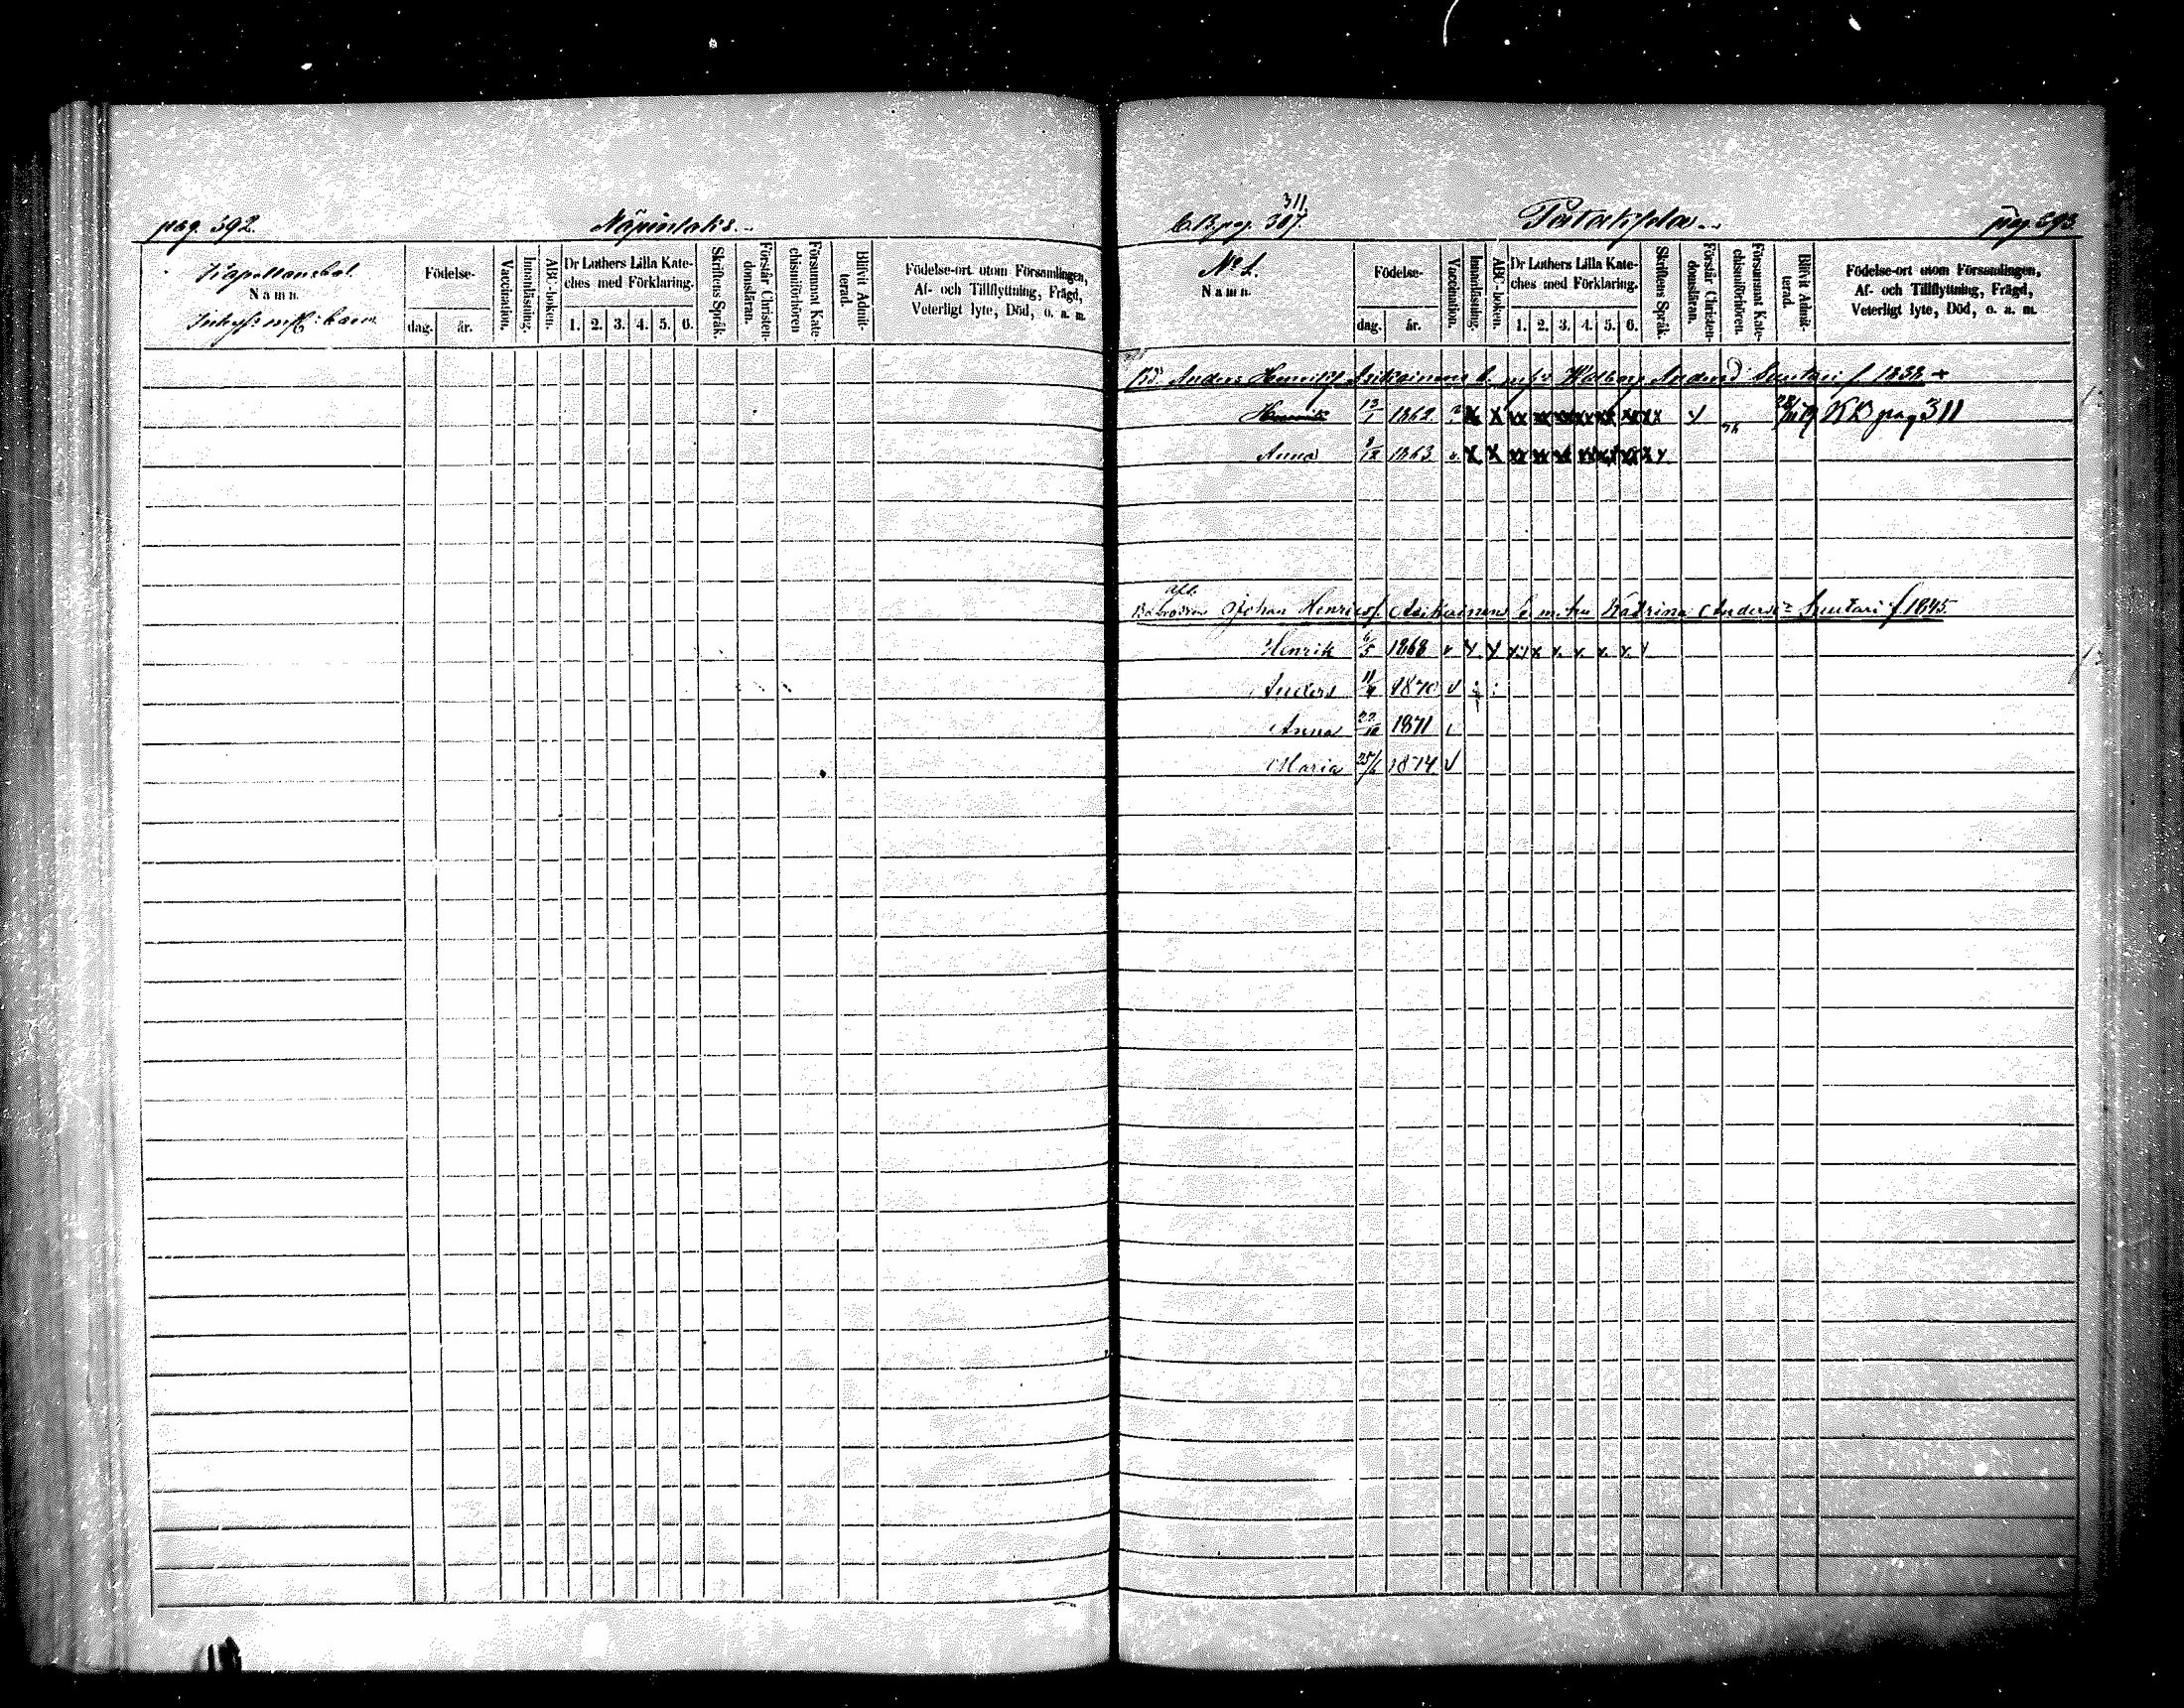 pag. 592.
Näpinlaks.
Kapellansbol.
Namn.
Födelse-
dag.
år.
Vaccination.
Innanläsning.
ABC-boken.
Dr Luthers Lilla Kate-
ches med Förklaring.
1. 2. 3. 4. 5. 6.
Skriftens Språk.
Förstår Christen-
domsläran.
Försummat Kate-
chismiförhören
Blifvit Admit-
terad.
Födelse-ort utom Församlingen,
Af- och Tillflyttning, Frägd,
Veterligt lyte, Död, o. a. m.
311.
C.B. pag. 307.
pag. 593.
No 1.
Namn.
Födelse-
dag.
år.
Vaccination.
Innanläsning.
ABC-boken.
Dr Luthers Lilla Kate-
ches med Förklaring.
1. 2. 3. 4. 5. 6.
Skriftens Språk.
Förstår Christen-
domsläran.
Försummat Kate-
chismiförhören.
Blifvit Admit-
terad.
Födelse-ort utom Församlingen,
Af- och Tillflyttning, Frägd,
Veterligt lyte, Död, o. a. m.
Bd. Anders Henriksf Asikainens b. m h Walborg Andersd Suutari f. 1838
Henrik 13/1 1862. KB pag 311
Anna 1863
Johan Henricsf. Asikainens b. m. hu Katrina Anders Suutari f. 1845.
Henrik 6/5 1868
Anders 11/4 1870
Anna 22/10 1871
Maria 25/6 1874